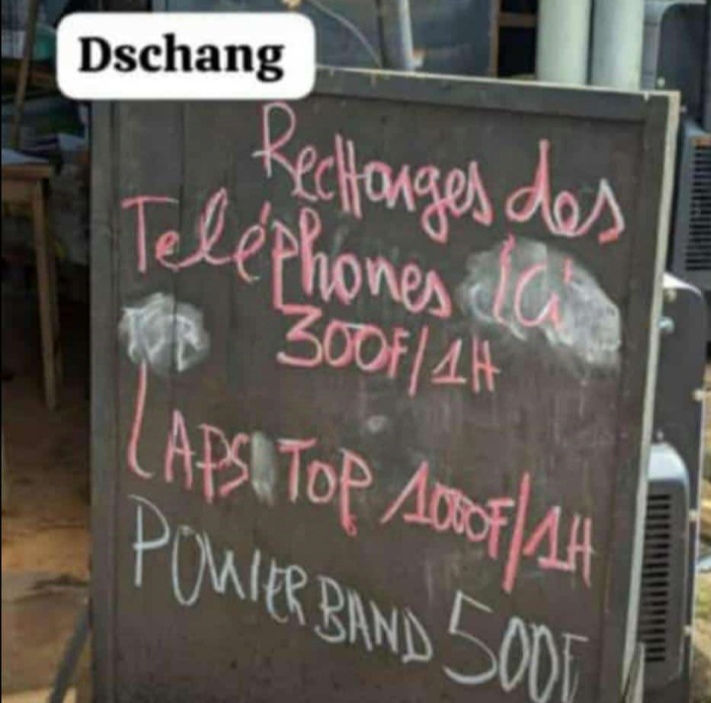 Dschang
RecHanges des
Teléphones ici
300F/1H
LAPS TOP 1000F/1H
POWIER BAND 500F